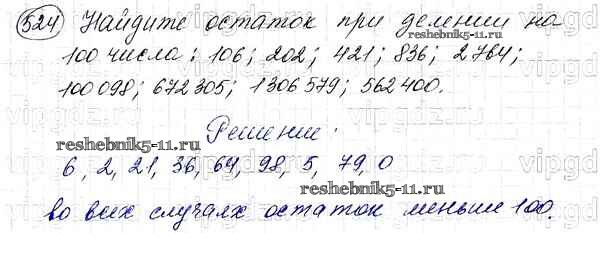 524 Найдите остаток при делении на
100 числа: 106; 202; 421; 836; 2764;
100098; 672305; 1306579; 562400.
Решение:
reshebnik5-11.ru
reshebnik5-11.ru
6, 2, 21, 36, 64, 98, 5, 79, 0
reshebnik5-11.ru
во всех случаях остаток меньше 100.